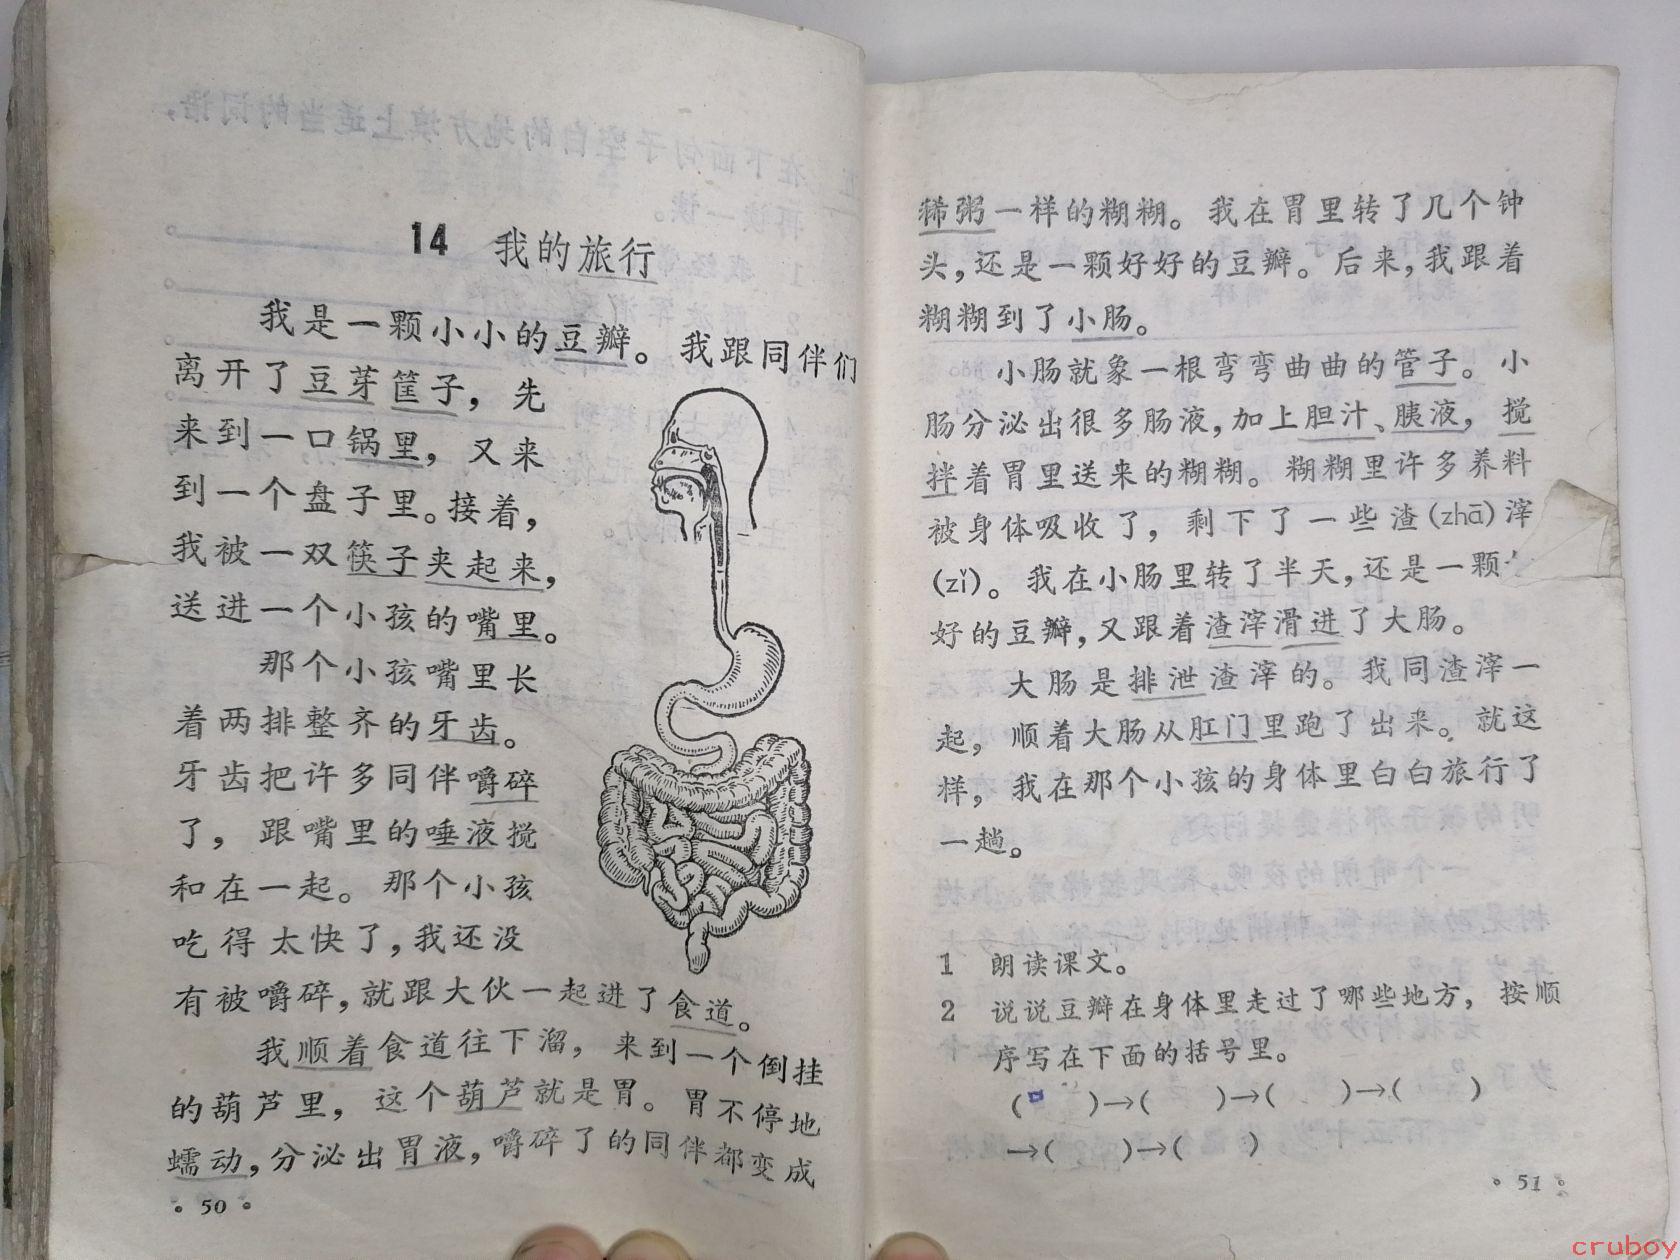 14 我的旅行
我是一颗小小的豆瓣。我跟同伴们
离开了豆芽筐子，先
来到一口锅里，又来
到一个盘子里。接着，
我被一双筷子夹起来，
送进一个小孩的嘴里。
那个小孩嘴里长
着两排整齐的牙齿。
牙齿把许多同伴嚼碎
了，跟嘴里的唾液搅
和在一起。那个小孩
吃得太快了，我还没
有被嚼碎，就跟大伙一起进了食道。
我顺着食道往下溜，来到一个倒挂
的葫芦里，这个葫芦就是胃。胃不停地
蠕动，分泌出胃液，嚼碎了的同伴都变成
50
稀粥一样的糊糊。我在胃里转了几个钟
头，还是一颗好好的豆瓣。后来，我跟着
糊糊到了小肠。
小肠就象一根弯弯曲曲的管子。小
肠分泌出很多肠液，加上胆汁、胰液，搅
拌着胃里送来的糊糊。糊糊里许多养料
被身体吸收了，剩下了一些渣(zhā)滓
(zǐ)。我在小肠里转了半天，还是一颗
好的豆瓣，又跟着渣滓滑进了大肠。
大肠是排泄渣滓的。我同渣滓一
起，顺着大肠从肛门里跑了出来。就这
样，我在那个小孩的身体里白白旅行了
一趟。
1 朗读课文。
2 说说豆瓣在身体里走过了哪些地方，按顺
序写在下面的括号里。
(口 )→( )→( )→( )
→( )→( )
51
cruboy